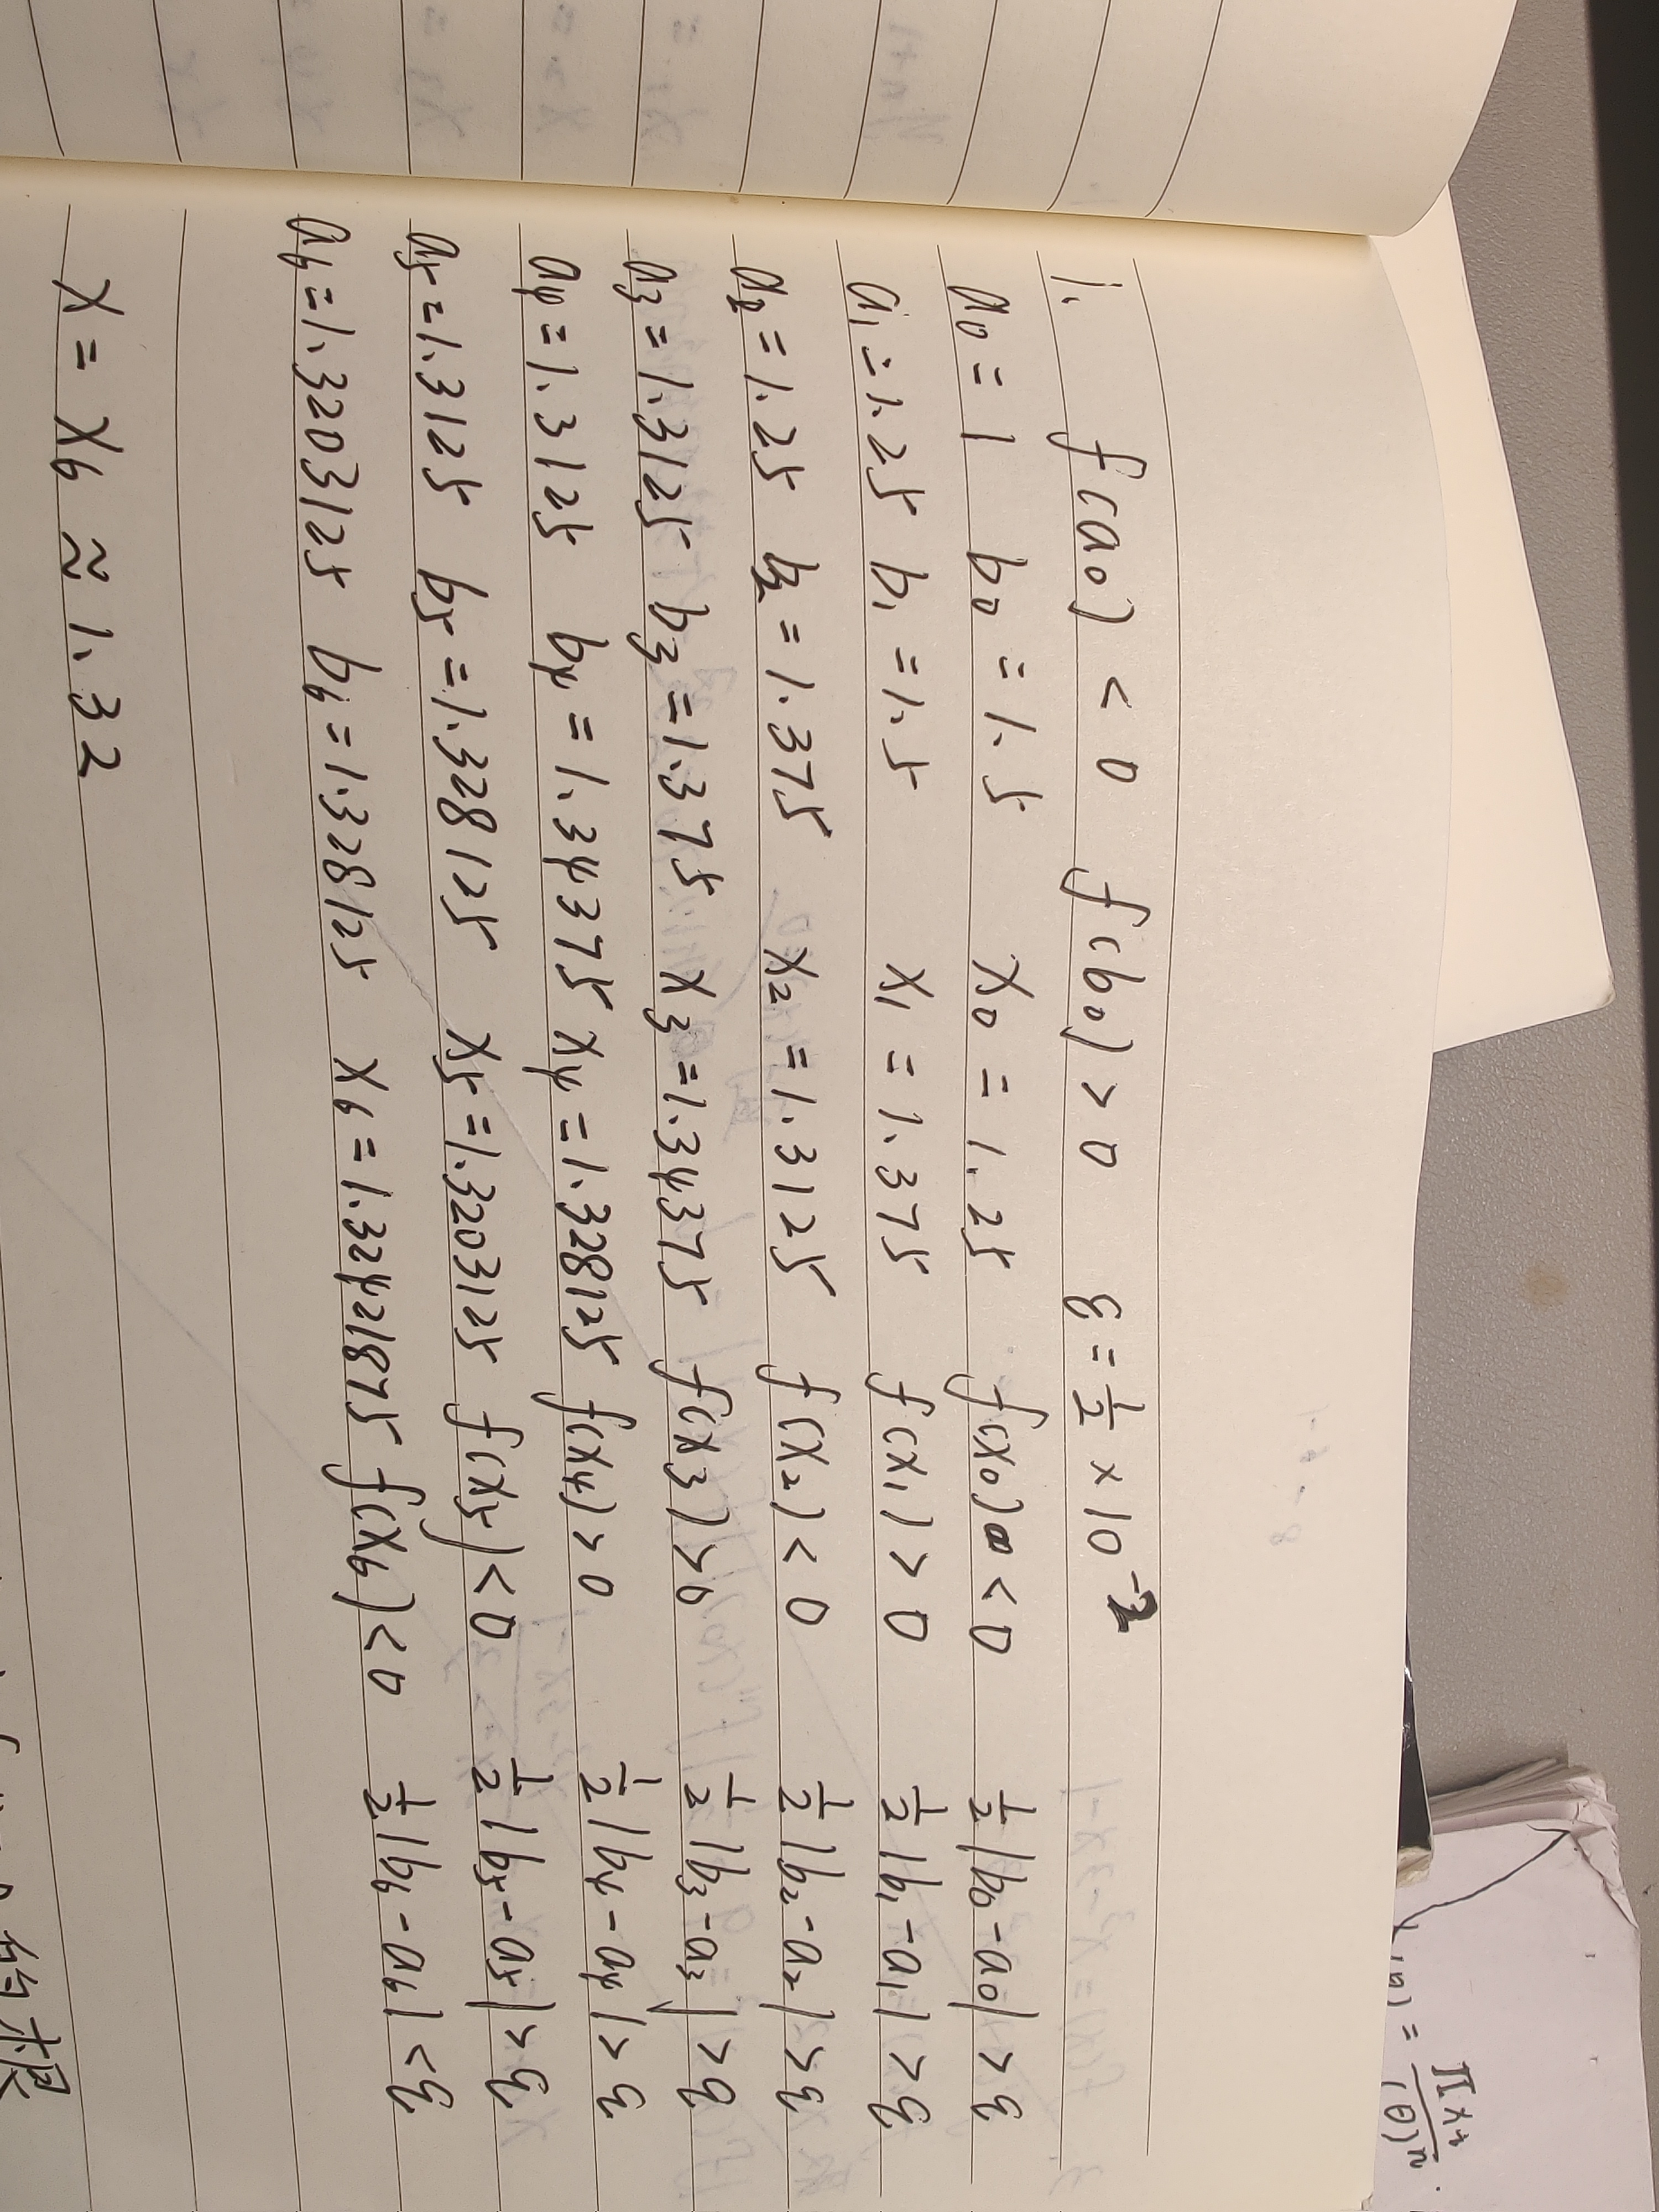 ∏xᵢ
(θ) = ――― .
(θ)ⁿ
1. f(a₀) < 0 f(b₀) > 0 ε = 1/2 × 10⁻²
a₀ = 1 b₀ = 1.5 x₀ = 1.25 f(x₀) < 0 1/2 |b₀ - a₀| > ε
a₁ = 1.25 b₁ = 1.5 x₁ = 1.375 f(x₁) > 0 1/2 |b₁ - a₁| > ε
a₂ = 1.25 b₂ = 1.375 x₂ = 1.3125 f(x₂) < 0 1/2 |b₂ - a₂| > ε
a₃ = 1.3125 b₃ = 1.375 x₃ = 1.34375 f(x₃) > 0 1/2 |b₃ - a₃| > ε
a₄ = 1.3125 b₄ = 1.34375 x₄ = 1.328125 f(x₄) > 0 1/2 |b₄ - a₄| > ε
a₅ = 1.3125 b₅ = 1.328125 x₅ = 1.3203125 f(x₅) < 0 1/2 |b₅ - a₅| > ε
a₆ = 1.3203125 b₆ = 1.328125 x₆ = 1.32421875 f(x₆) < 0 1/2 |b₆ - a₆| < ε
x = x₆ ≈ 1.32
的根